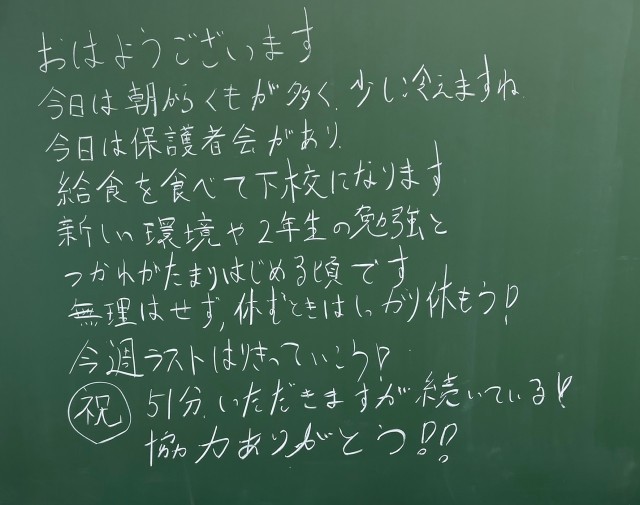 おはようございます
今日は朝からくもが多く、少し冷えますね
今日は保護者会があり、
給食を食べて下校になります
新しい環境や2年生の勉強と
つかれがたまりはじめる頃です
無理はせず、休むときはしっかり休もう!
今週ラストはりきっていこう!
祝 51分、いただきますが続いている!
協力ありがとう!!